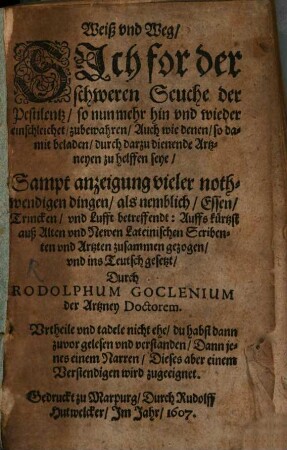 Weiß vnd Weg/
SIch for der
schweren Seuche der
Pestilentz/ so nunmehr hin vnd wieder
einschleichet/ zubewahren/ Auch wie denen/ so da-
mit beladen/ durch darzu dienende Artz-
neyen zu helffen seye/
Sampt anzeigung vieler noth-
wendigen dingen/ als nemblich/ Essen/
Trincken/ vnd Lufft betreffendt: Auffs kürtzst
auß Alten vnd Newen Lateinischen Scriben-
ten vnd Artzten zusammen gezogen/
vnd ins Teutsch gesetzt/
Durch
RODOLPHUM GOCLENIUM
der Artzney Doctorem.
Vrtheile vnd tadele nicht ehe/ du habst dann
zuvor gelesen vnd verstanden/ Dann je-
nes einem Narren/ Dieses aber einem
Verstendigen wird zugeeignet.
Gedruckt zu Marpurg/ Durch Rudolff
Hutwelcker/ Im Jahr/ 1607.